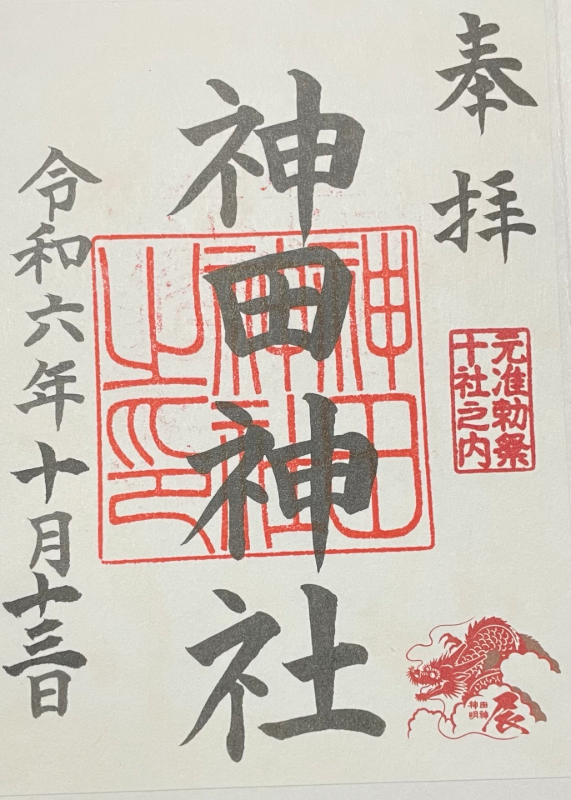 奉拝
元准勅祭
十社之内
神田神社
神田
神社
之印
神田
明神
辰
令和六年十月十三日